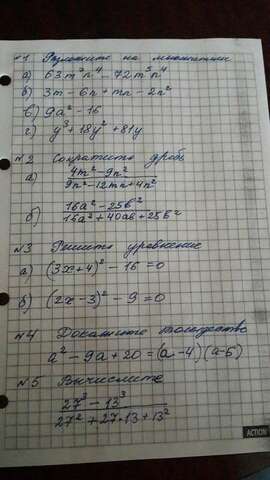 №1 Разложите на множители
а) 63m³n⁴ - 72m⁵n⁴
б) 3m - 6n + mn - 2n²
в) 9a² - 16
г) y³ + 18y² + 81y
№2 Сократите дробь
а) 4m² - 9n² / 9n² - 12mn + 4n²
б) 16a² - 25b² / 16a² + 40ab + 25b²
№3 Решите уравнение
а) (3x+4)² - 16 = 0
б) (2x - 3)² - 9 = 0
№4 Докажите тождество
a² - 9a + 20 = (a - 4)(a - 5)
№5 Вычислите
27³ - 13³ / 27² + 27·13 + 13²
ACTION